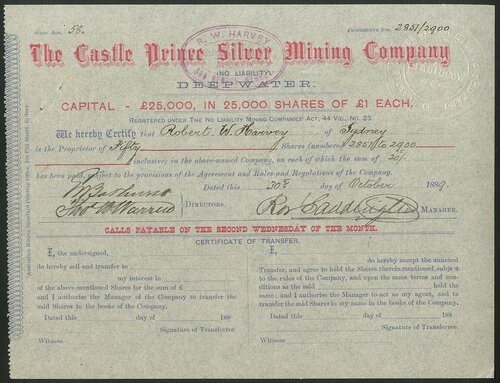 Scrip Nos. 58. Progressive Nos. 2851/2900
R. W. HARVEY
The Castle Prince Silver Mining Company
(NO LIABILITY)
DEEPWATER.
CAPITAL - £25,000, IN 25,000 SHARES OF £1 EACH.
REGISTERED UNDER THE NO LIABILITY MINING COMPANIES' ACT, 44 VIC., NO. 23.
We hereby Certify that Robert W. Harvey of Sydney
is the Proprietor of Fifty Shares (numbered 2851 to 2900
inclusive) in the above-named Company, on each of which the sum of 20/-
has been paid, subject to the provisions of the Agreement and Rules and Regulations of the Company.
Dated this 30th day of October 1889.
DIRECTORS.
MANAGER.
CALLS PAYABLE ON THE SECOND WEDNESDAY OF THE MONTH.
CERTIFICATE OF TRANSFER.
I, the undersigned,
do hereby sell and transfer to
my interest in
of the above-mentioned Shares for the sum of £
and I authorise the Manager of the Company to transfer the
said Shares in the books of the Company.
Dated this day of 188
Signature of Transferror.
Witness
I,
do hereby accept the annexed
Transfer, and agree to hold the Shares therein mentioned, subject
to the rules of the Company, and upon the same terms and
conditions as the said held the
same; and I authorise the Manager to act as my agent, and to
transfer the said Shares in my name in the books of the Company.
Dated this day of 188
Signature of Transferree.
Witness